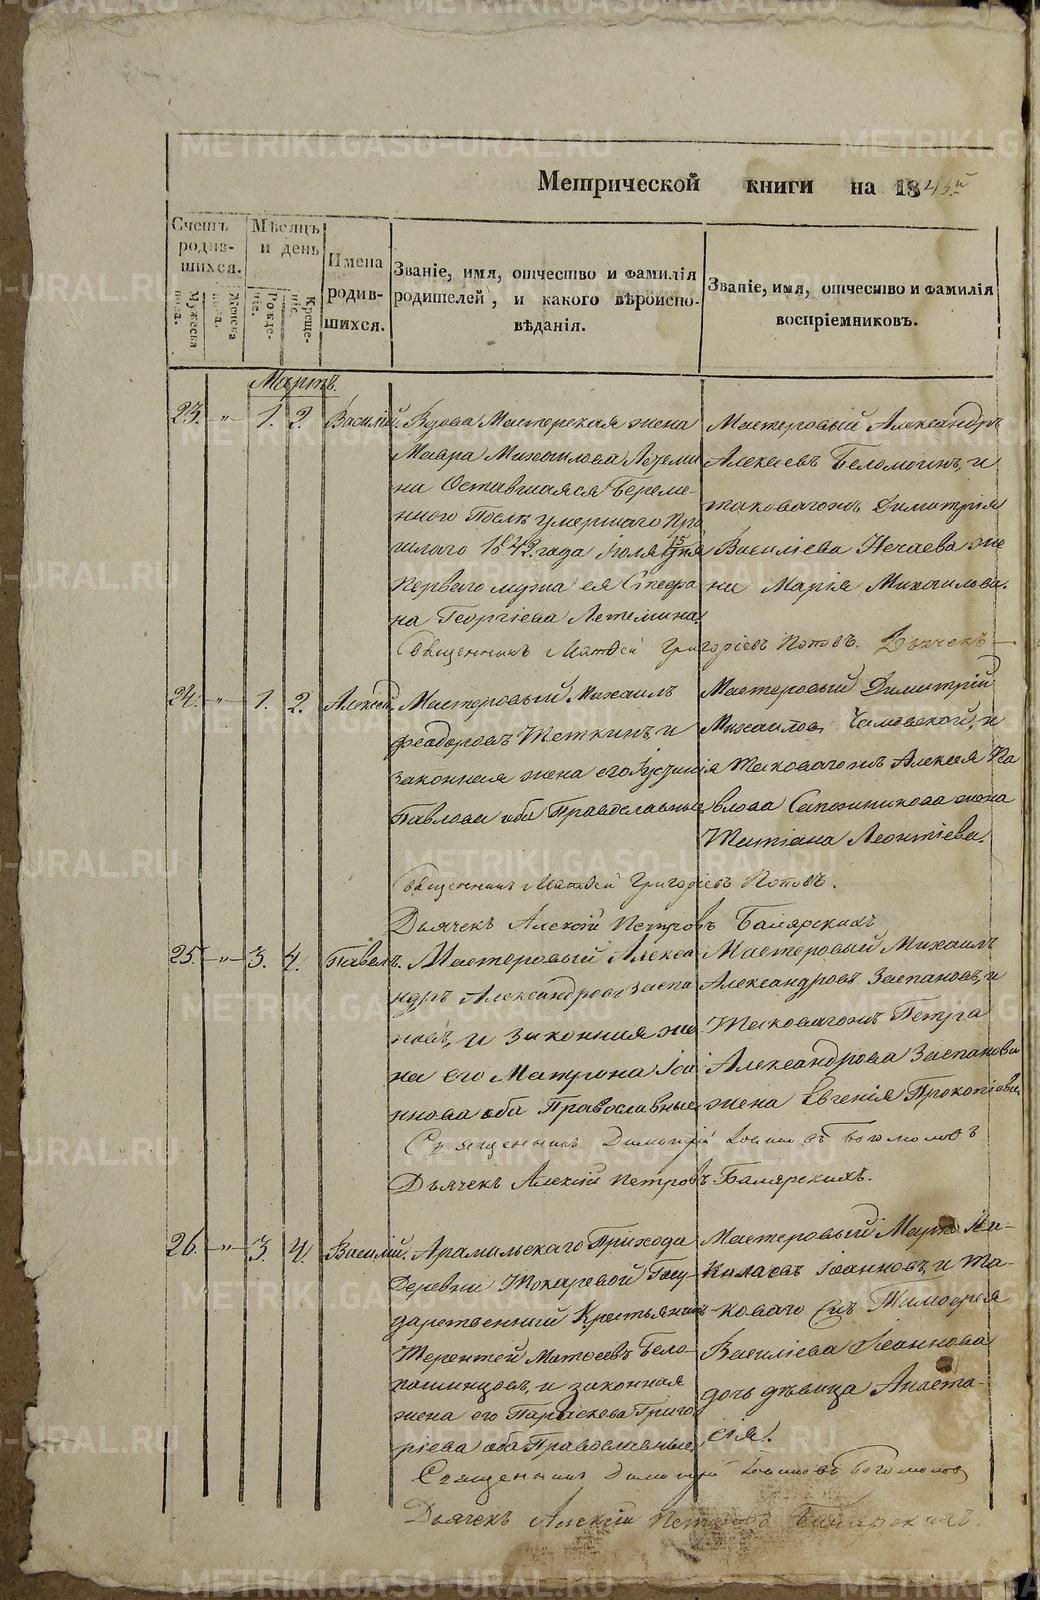 Метрической книги на 1843й
Счетъ родив-
шихся.
Мужеска пола.
Женска пола.
Мѣсяцъ и день
Рожде-
нiе.
Креще-
нiе.
Имена
родив-
шихся.
Званiе, имя, отчество и фамилiя
родителей, и какого вѣроиспо-
вѣданiя.
Званiе, имя, отчество и фамилiя
воспрiемниковъ.
Мартъ.
23. — „ — 1. 2. Василiй. Вдова Мастерская жена
Мавра Михаилова Летеми
на Оставшаяся Береме-
нного Послѣ умершаго Про
шлаго 1842 года Iюля 15 дня
Первого мужа ея Стефа
на Георгiева Летемина.
Мастеровый Александръ
Алексеевъ Беломоинъ, и
таковагожъ Димитрiя
Василiева Нечаева же
на Марiя Михаилова.
Священникъ Матѳей Григорiевъ Поповъ. Дьячекъ —
24. — „ — 1. 2. Алексѣй. Мастеровый Михаилъ
Феодоровъ Щеткинъ, и
законная жена его
Павлова оба Православные
Мастеровый Димитрiй
Михаиловъ и
таковагожъ Алексея Па
влова Сапожникова жена
Татiана Леонтiева.
Священникъ Матѳей Григорiевъ Поповъ.
Дьячекъ Алексiй Петровъ Балярскихъ
25. — „ — 3. 4. Павелъ. Мастеровый Алекса
ндръ Александровъ Заспа
новъ, и законная же
на его Матрона Iоа
ннова оба Православные
Мастеровый Михаилъ
Александровъ Заспановъ, и
таковагожъ Петра
Александрова Заспанова
жена Евгенiя Прокопiева.
Священникъ Димитрiй Iоанновъ Богомоловъ
Дьячекъ Алексiй Петровъ Балярскихъ.
26. — „ — 3. 4. Василiй. Арамильскаго Прихода
Деревни Токаревой Госу-
дарственный Крестьянинъ
Терентей Матѳеевъ Бело-
и законная
жена его Параскева Григо
рiева оба Православные,
Мастеровый Маркъ Ни-
колаевъ Iоанновъ, и та-
коваго Съ Тимоѳея
Василiева Iоаннова
дочь дѣвица Анаста-
сiя.
Священникъ Димитрiй Iоанновъ Богомоловъ
Дьячекъ Алексiй Петровъ Балярскихъ.
METRIKI.GASO-URAL.RU